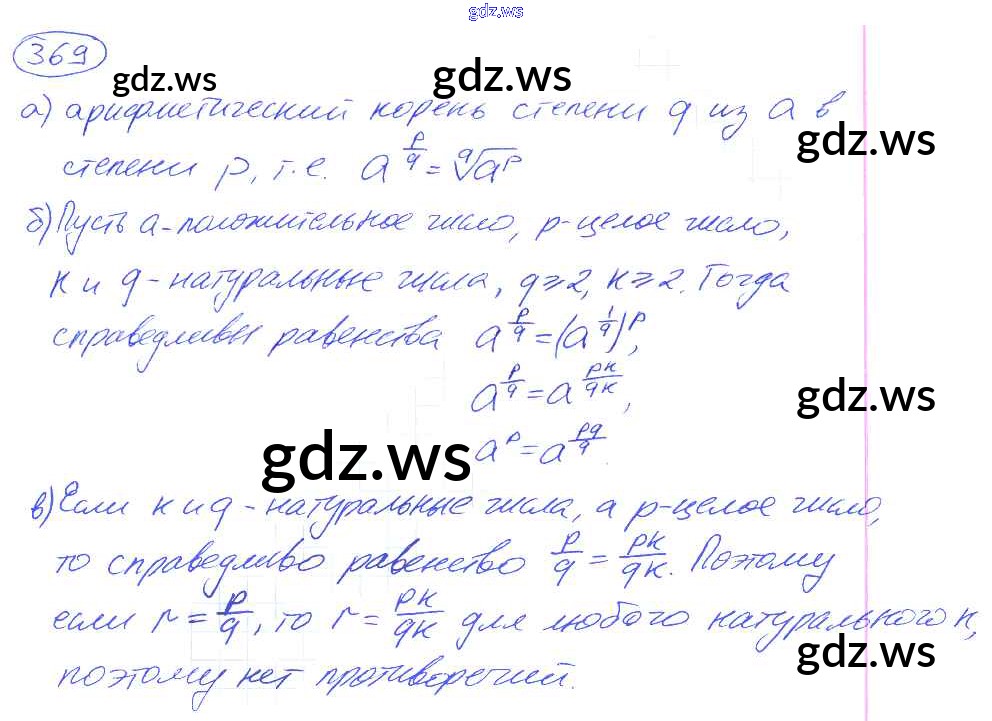 gdz.ws
369
gdz.ws gdz.ws
а) арифметический корень степени q из a в
gdz.ws
степени p, т.е. a^(p/q) = ^q√(a^p)
б) Пусть a - положительное число, p - целое число,
к и q - натуральные числа, q ⩾ 2, к ⩾ 2. Тогда
справедливы равенства a^(p/q) = (a^(1/q))^p,
a^(p/q) = a^(pк/qк),
gdz.ws
a^p = a^(pq/q).
gdz.ws
в) Если к и q - натуральные числа, а p - целое число,
то справедливо равенство p/q = pк/qк. Поэтому
если r = p/q, то r = pк/qк для любого натурального к,
gdz.ws
поэтому нет противоречий.